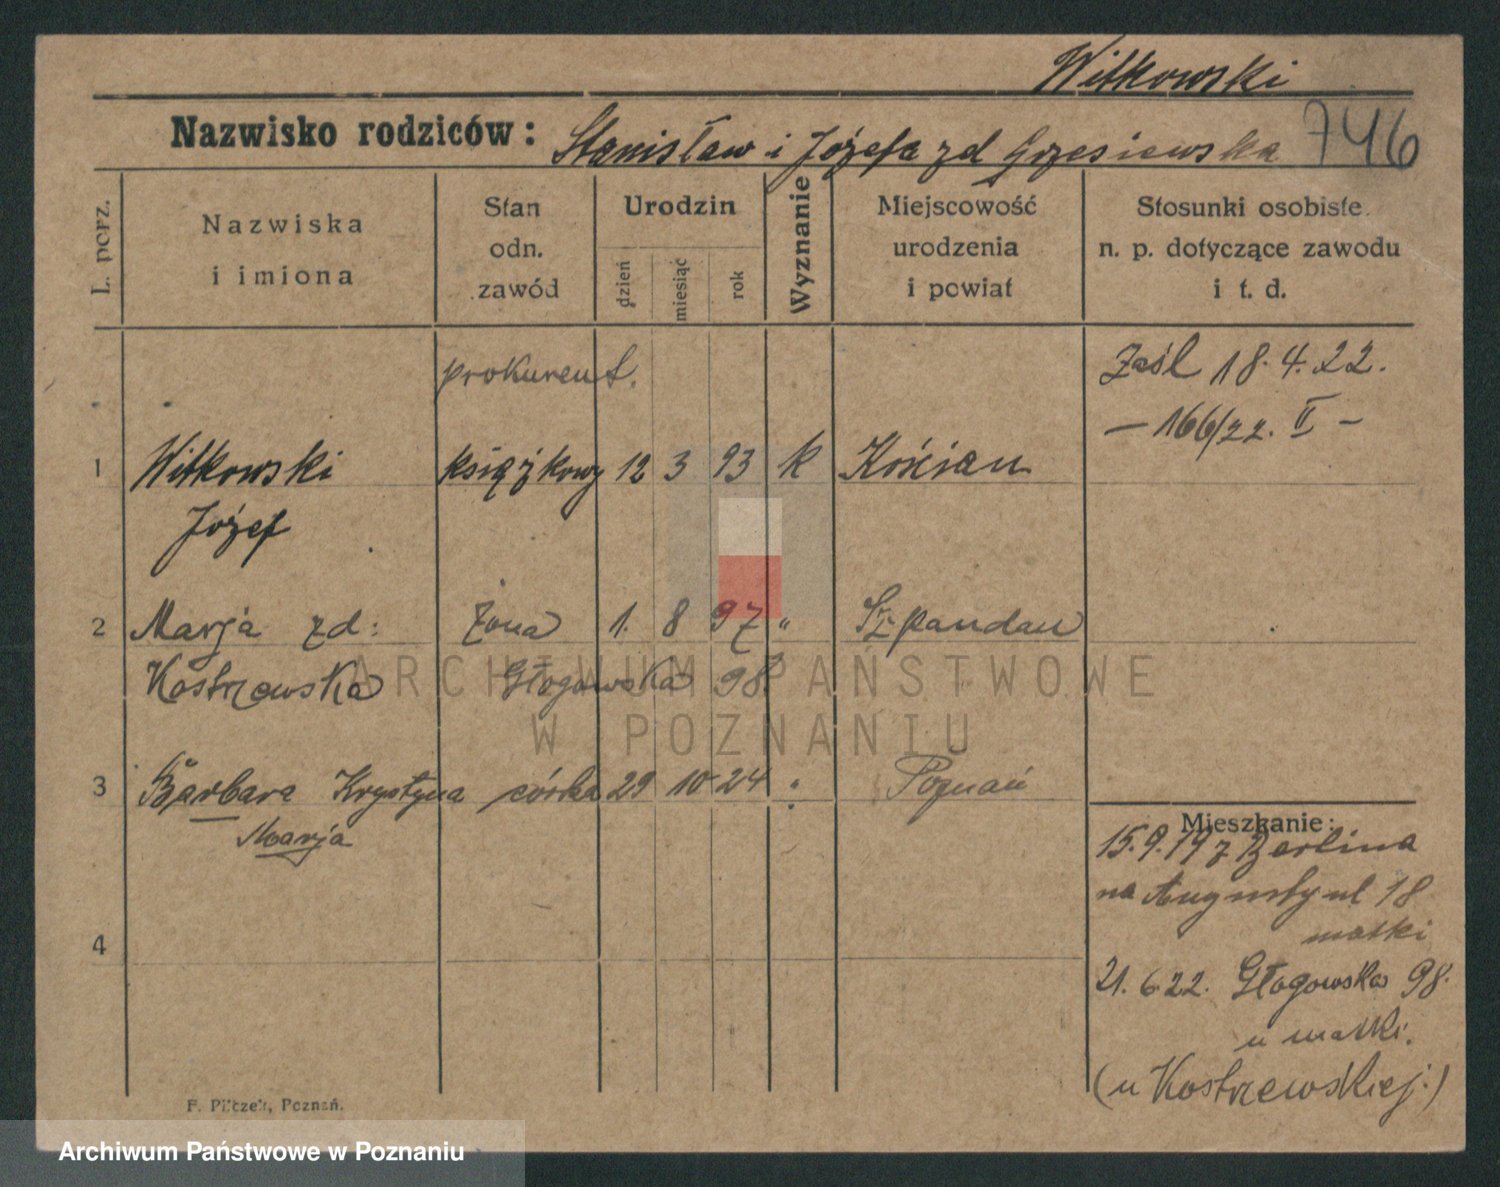 Witkowski
Nazwisko rodziców: Stanisław i Józefa zd Grzesiewska 746
L. porz.
Nazwiska i imiona
Stan odn. zawód
Urodzin
dzień miesiąc rok
Wyznanie
Miejscowość urodzenia i powiat
Stosunki osobiste n. p. dotyczące zawodu i t. d.
prokurent. Zaśl 18.4.22.
— 166/22. II —
1 Witkowski książkowy 12 3 93 k Kościan
Józef
2 Marja zd: żona 1. 8 97 " Szpandau
Kostrzewska Głogowska 98.
3 Barbara Krystyna córka 29 10 24 " Poznań
Marja
Mieszkanie:
15.9.19 z Berlina
na Augusty ul 18
matki
4
21.6.22. Głogowska 98.
u matki.
(u Kostrzewskiej.)
F. Pilczek, Poznań.
ARCHIWUM PAŃSTWOWE
W POZNANIU
Archiwum Państwowe w Poznaniu